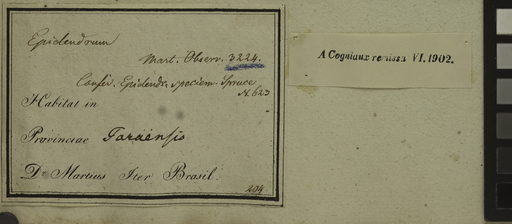 Epidendrum
Mart. Observ. 3224.
Confer. Epidendr. speciem Spruce
N. 623
Habitat in
Provinciae Paraensis
Dr Martius Iter Brasil.
204
A Cogniaux revissa VI. 1902.